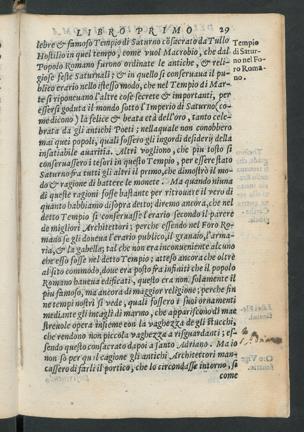 LIBRO PRIMO 29
lebre & famoso Tempio di Saturno cōsacrato da Tullo
Hostilio in quel tempo, come vuol Macrobio, che dal
Popolo Romano furono ordinate le antiche, & reli-
giose feste Saturnali; & in quello si conseruaua il pu-
blico erario nello istesso modo, che nel Tempio di Mar-
te si riponeuano l'altre cose secrete & importanti, per
essersi goduta il mondo sotto l'Imperio di Saturno (co-
me dicono) la felice & beata età dell'oro, tanto cele-
brata da gli antichi Poeti; nella quale non conobbero
mai quei popoli, quali fossero gli ingordi desiderij della
insatiabile auaritia. Altri vogliono, che piu tosto si
conseruassero i tesori in questo Tempio, per essere stato
Saturno fra tutti gli altri il primo, che dimostrò il mo-
do & ragione di battere le monete. Ma quando niuna
di queste ragioni fosse bastante per ritrouare il vero di
quanto habbiamo disopra detto; diremo ancora, che nel
detto Tempio si conseruasse l'erario secondo il parere
de migliori Architettori; perche essendo nel Foro Ro-
mano se gli doueua l'erario publico, il granaio, l'arma-
ria, & la gabella; tal che non era inconueniente alcuno
che esso fosse nel detto Tempio; atteso ancora che oltre
al sito commodo, doue era posto fra infiniti che il popolo
Romano haueua edificati, questo era non solamente il
piu famoso, ma ancora di maggior religione; perche fin
ne tempi nostri si vede, quali fossero i suoi ornamenti
mediante gli incagli di marmo, che appariscono di mae
streuole opera insieme con la vaghezza de gli stucchi,
che rendono non piccola vaghezza a risguardanti; es-
sendo questo consacrato dapoi a Santo Adriano. Ma io
non so per qual cagione gli antichi Architettori man-
cassero di farli il portico, che lo circondasse intorno, si
come
Tempio
di Satur-
no nel Fo-
ro Roma-
no.